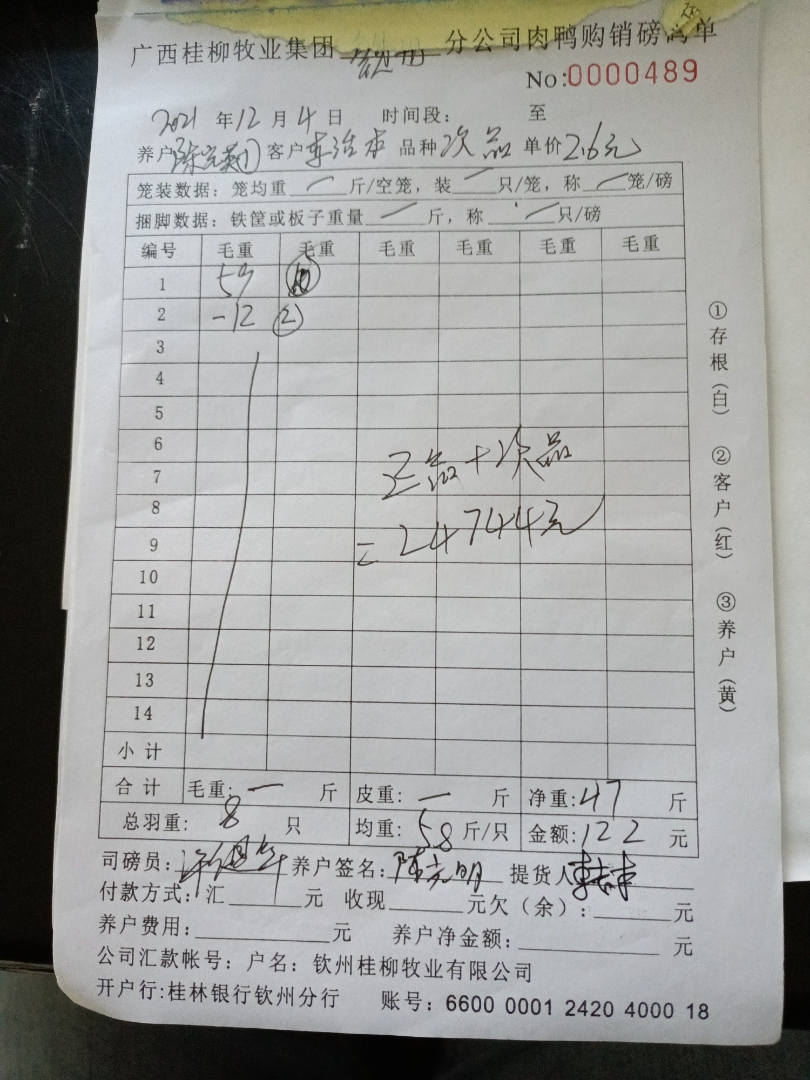 广西桂柳牧业集团 钦州 分公司肉鸭购销磅码单
No:0000489
2021 年 12 月 4 日 时间段: 至
养户 客户 品种 次品 单价 2.6元
笼装数据: 笼均重 一 斤/空笼, 装 一 只/笼, 称 一 笼/磅
捆脚数据: 铁筐或板子重量 一 斤, 称 一 只/磅
编号 毛重 毛重 毛重 毛重 毛重 毛重
1 59 ⑩
2 -12 ②
3
4
5
6
7
8
9
10
11
12
13
14
正品+次品
=24744元
小计
合计 毛重: 一 斤 皮重: 一 斤 净重: 47 斤
总羽重: 8 只 均重: 5.8 斤/只 金额: 122 元
司磅员: 养户签名: 陈 明 提货人
付款方式: 汇 元 收现 元欠(余): 元
养户费用: 元 养户净金额: 元
公司汇款帐号: 户名: 钦州桂柳牧业有限公司
开户行:桂林银行钦州分行 账号: 6600 0001 2420 4000 18
①存根(白) ②客户(红) ③养户(黄)